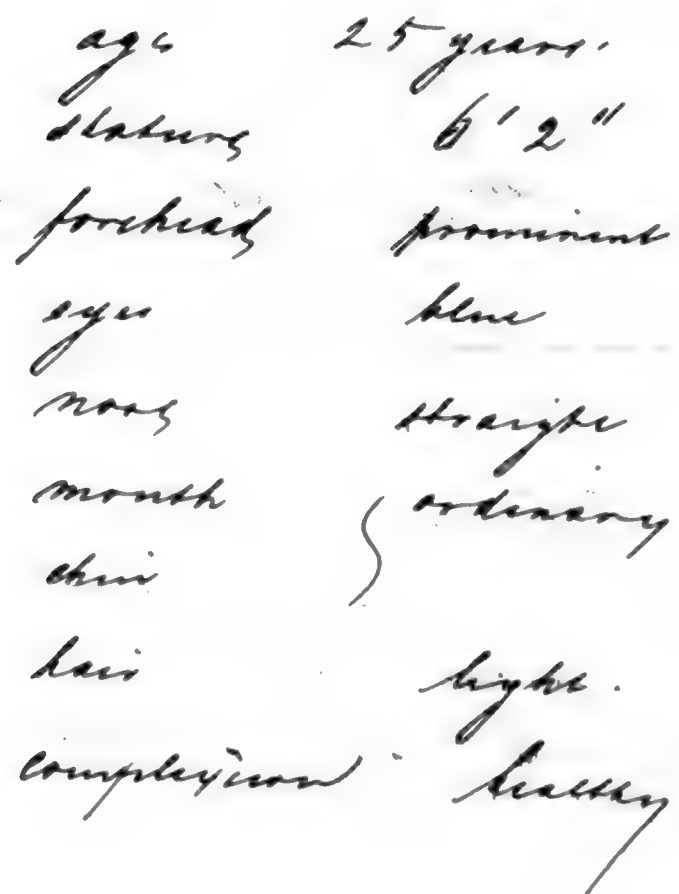 age 25 years.
stature 6' 2"
forehead prominent
eyes blue
noos straight
mouth ordinary
chin
hair light.
complexion healthy